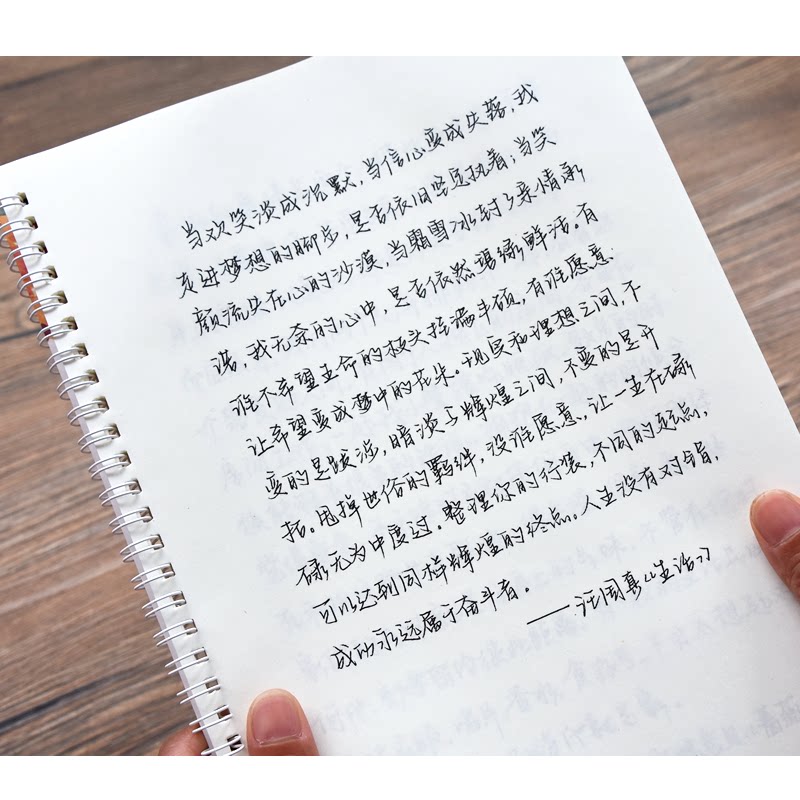 当欢笑淡成沉默，当信心变成失落，我
走进梦想的脚步，是否依旧坚定执着；当笑
颜流失在心的沙漠，当霜雪冰封了亲情承
诺，我无奈的心中，是否依然碧绿鲜活。有
谁不希望生命的枝头挂满丰硕，有谁愿意
让希望变成梦中的花朵。现实和理想之间，不
变的是跋涉，暗淡与辉煌之间，不变的是开
拓。甩掉世俗的羁绊，没谁愿意，让一生在碌
碌无为中度过。整理你的行装，不同的起点，
可以达到同样辉煌的终点。人生没有对错，
成功永远属于奋斗者。
——汪国真《生活》